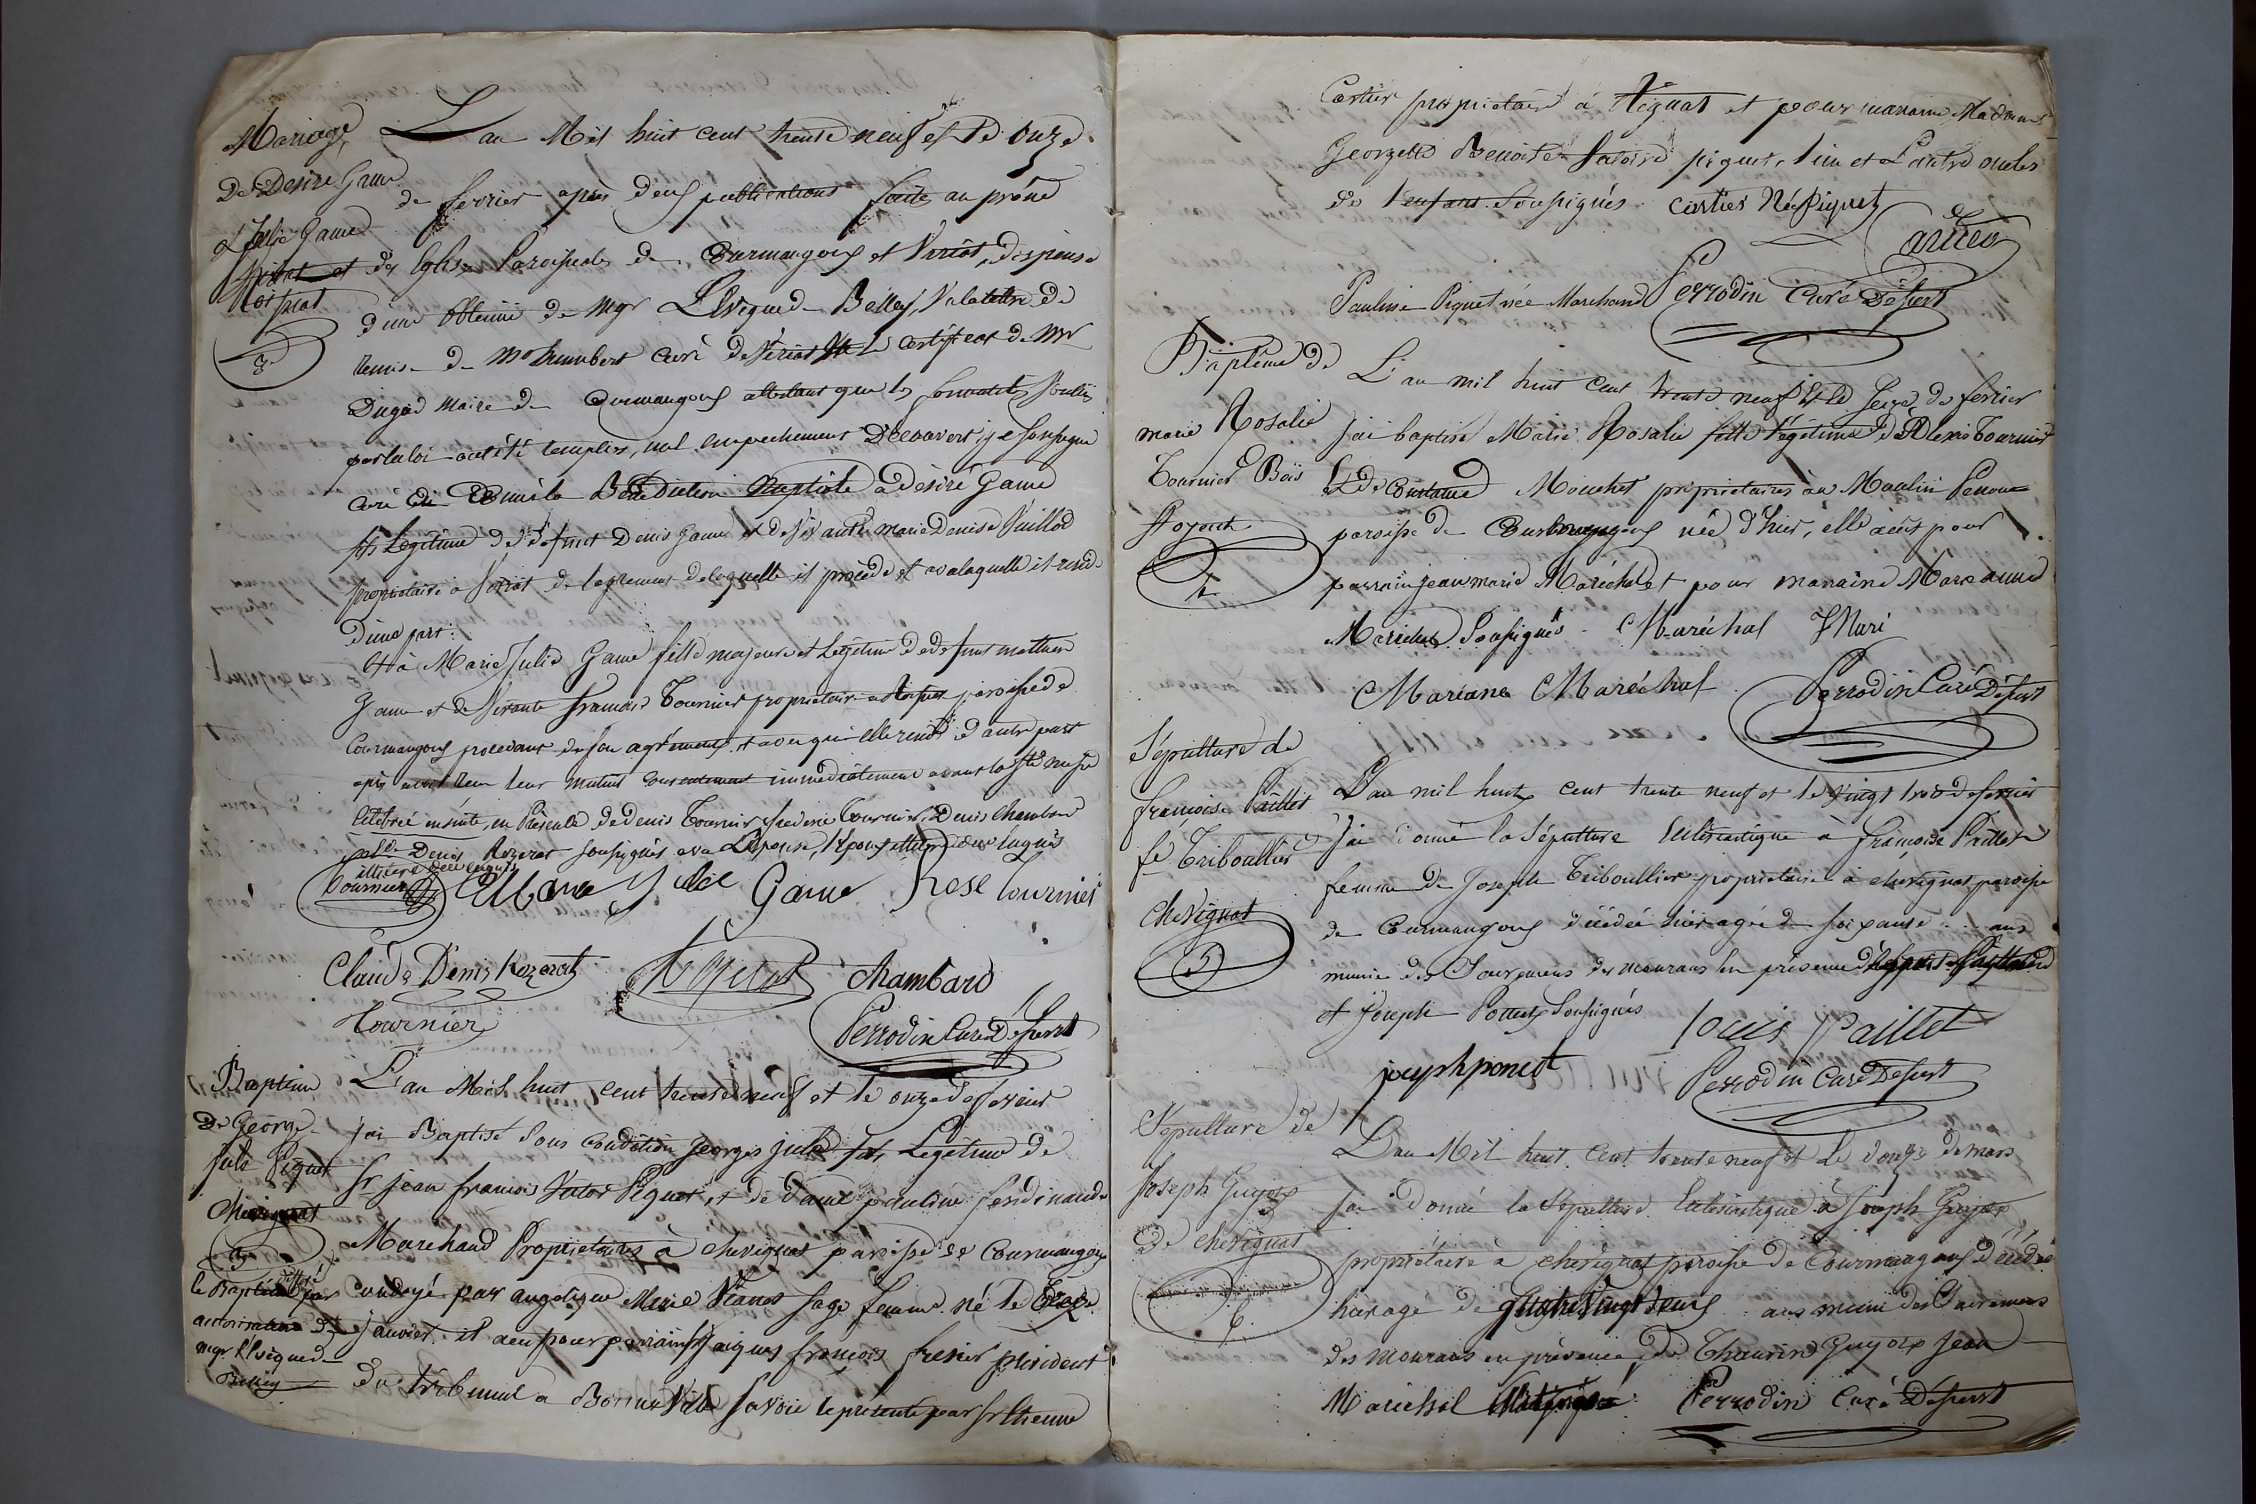 Mariage
De Desiré Game
& Julie Game
Noispiat
3
L'an Mil huit cent trente neuf et le onze
de fevrier après deux publications faite au prône
des Eglises Paroissiales de Courmangoux et Viriat, dispense
d'une obtenüe de Mgr L'Evêque de Belley, Vu la lettre de
remise de Mr humbert curé de Viriat Vu le certificat de Mr
Dugad Maire de Courmangoux attestant que les formalités voulües
par la loi ont été remplies, nul empechement découvert, je soussigné
curé ai donné la Bénédiction Nuptiale à désiré Game
fils Légitime de défunt Denis Game et de vivante marie Denise Vuillod
propriétaire à Viriat de l'agrément de laquelle il procède et avec laquelle il reside
D'une part:
Et à Marie Julie Game fille majeure et Légitime de defunt mathieu
Game et de vivante francoise Tournier propriétaire à paroisse de
Courmangoux procedant de son agrément et avec qui elle reside d'autre part
après avoir reçu leur mutuel consentement immédiatement avant la Ste messe
célébrée ensuite, en Présence de denis Tournier, frederic Tournier, Denis Chambard
Denis Rozerat soussignés avec L'épouse, l'époux illitéré de ce enquis
Tournier Marie Julie Game Rose Tournier
Claude Denis Rozerat chambard
Tournier
Perrodin Curé Dessert
Baptême
de George
jule Piquet
Chevignat
le Baptême différé par
autorisation de
mgr l'Evêque de
Belley
L'an Mil huit cent trente neuf et le onze de fevrier
j'ai Baptisé Sous Condition Georges jule fils Légitime de
Sr jean francois Victor Piquet, et de dame pauline ferdinande
Marchand Propriétaires à chevignat paroisse de Courmangoux
ondoyé par angelique Marie Vianet sage femme né le treize
janvier. il a eu pour parrain jaques françois frezier président
du tribunal à Bonneville Savoie représenté par Sr Etienne
Cartier propriétaire à et pour marraine Madame
Georzette Benoite Victoire piquet, l'un et L'autre oncles
de l'enfant Soussignés. Cartier Née Piquet
Cartier
Pauline Piquet née Marchand Perrodin Curé Dessert
Baptême de
marie Rosalie
Tournier Bois
Soyout
4
L'an mil huit cent trente neuf et le seize de fevrier
j'ai baptisé Marie Rosalie fille légitime d'Alexis Tournier
& de Constance Mouchet propriétaires au Moulin
paroisse de Courmangoux née d'hier, elle a eut pour
parrain jean marie Maréchal et pour marraine Marianne
Maréchal Soussignés. Maréchal J Mari
Mariane Maréchal Perrodin Curé Dessert
Sépulture de
francoise Paillet
fe Triboullier
Chevignat
5
L'an mil huit cent trente neuf et le vingt trois de fevrier
j'ai donné la Sépulture Ecclésiastique à françoise Paillet
femme de Joseph Triboullier propriétaire à chevignat paroisse
de Courmangoux décédée hier agée de soixante ans
munie des Sacremens des mourans En présence de Paillet
et Joseph Poncet Soussignés Louis Paillet
joseph poncet Perrodin Curé Dessert
Sépulture de
Joseph Guyot
de chevignat
6
L'an Mil huit cent trente neuf et Le douze de mars
j'ai donné la Sépulture Ecclésiastique à Joseph Guyot
propriétaire à chevignat paroisse de Courmangoux décédé
hier agé de quatre vingt deux ans muni des Sacremens
des mourans en présence de Guyot Jean
Maréchal Perrodin Curé Dessert